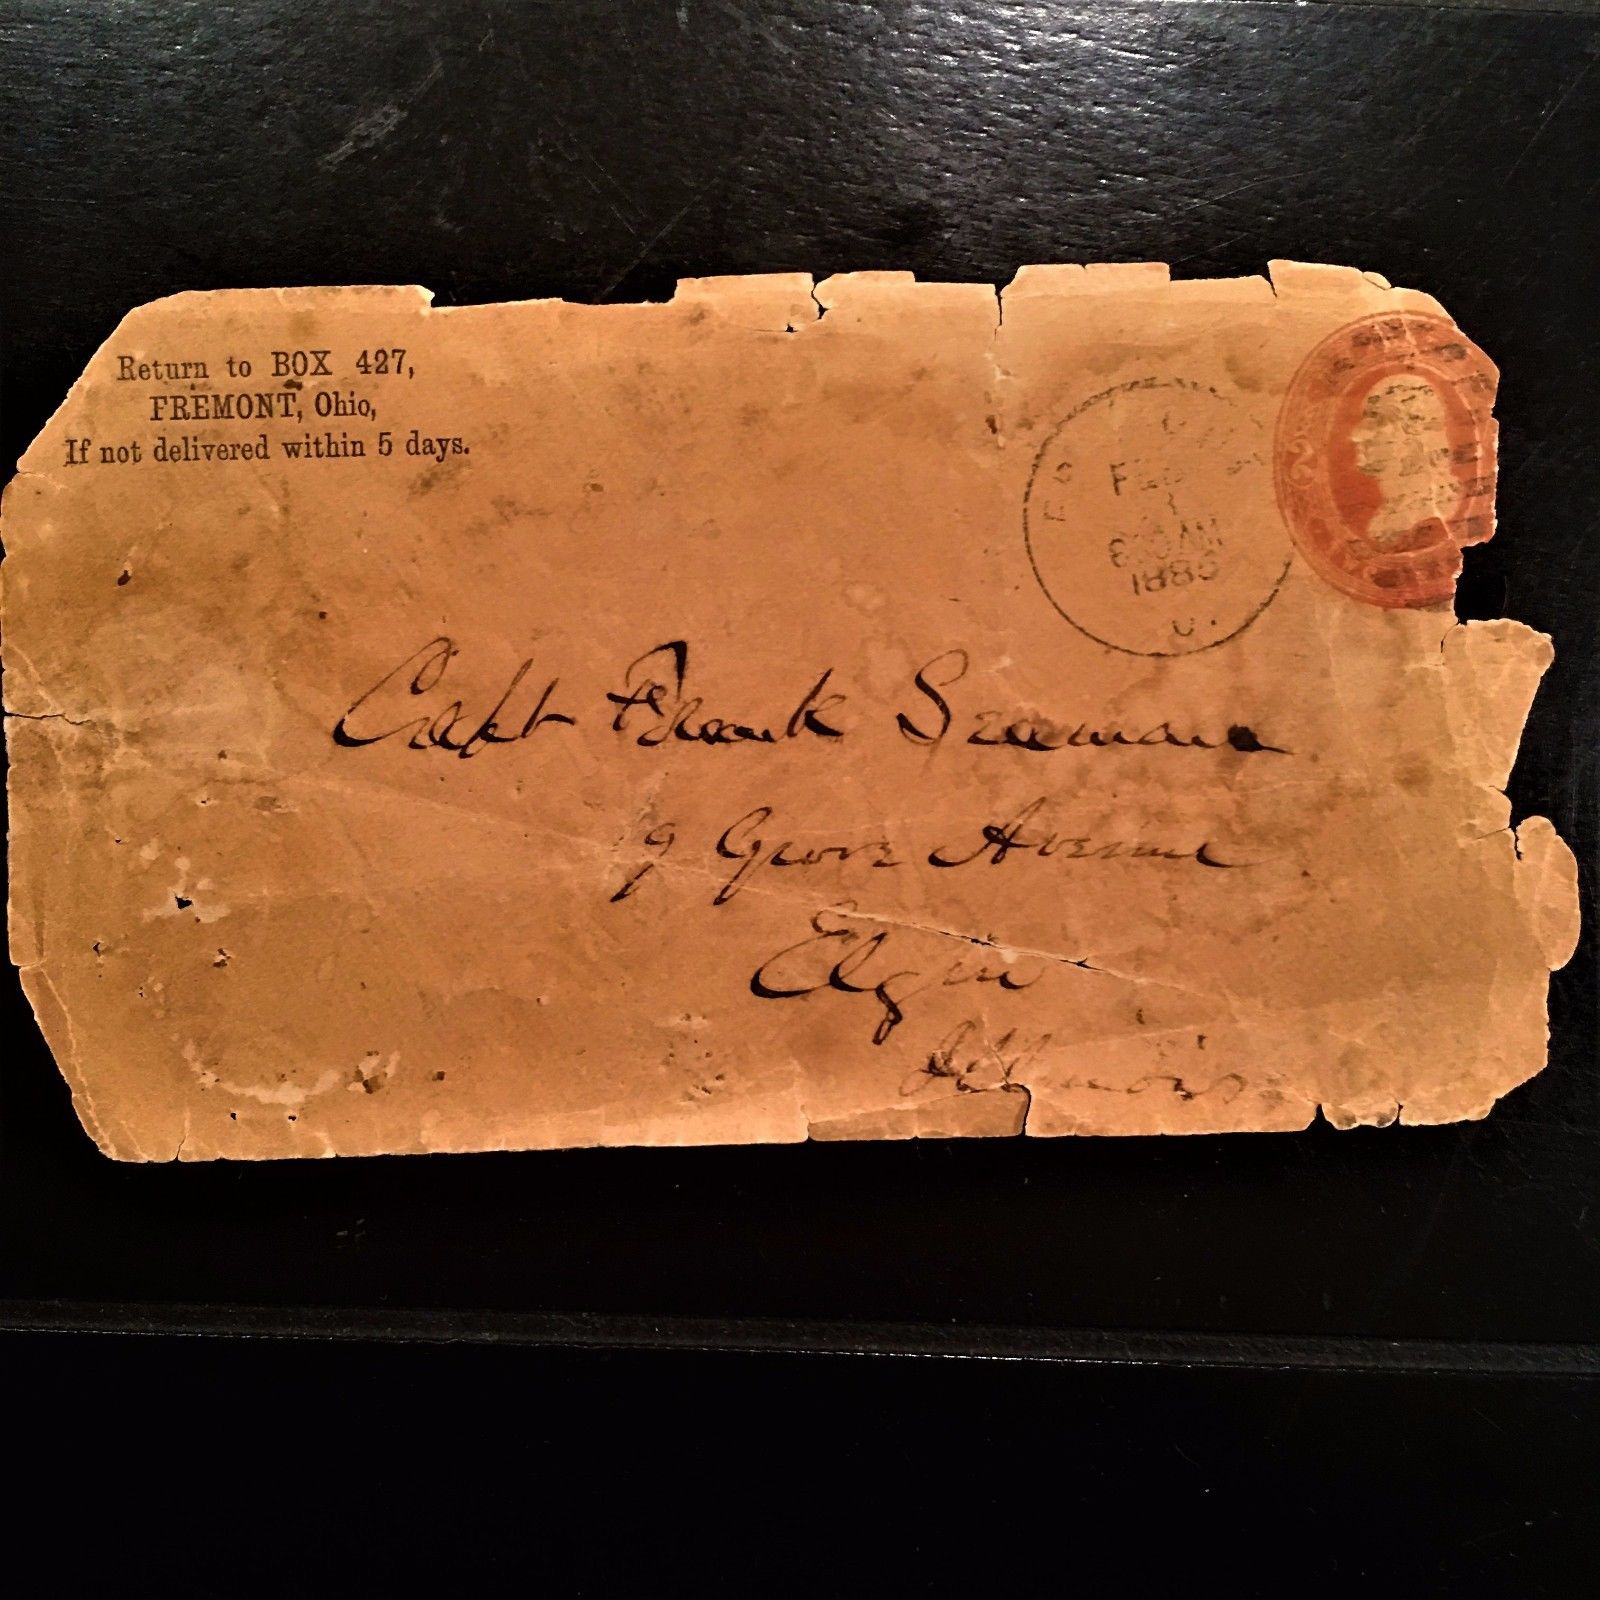 Return to BOX 427,
FREMONT, Ohio,
If not delivered within 5 days.
FEB
Capt Frank Seaman
19 Grove Avenue
Elgin
Illinois